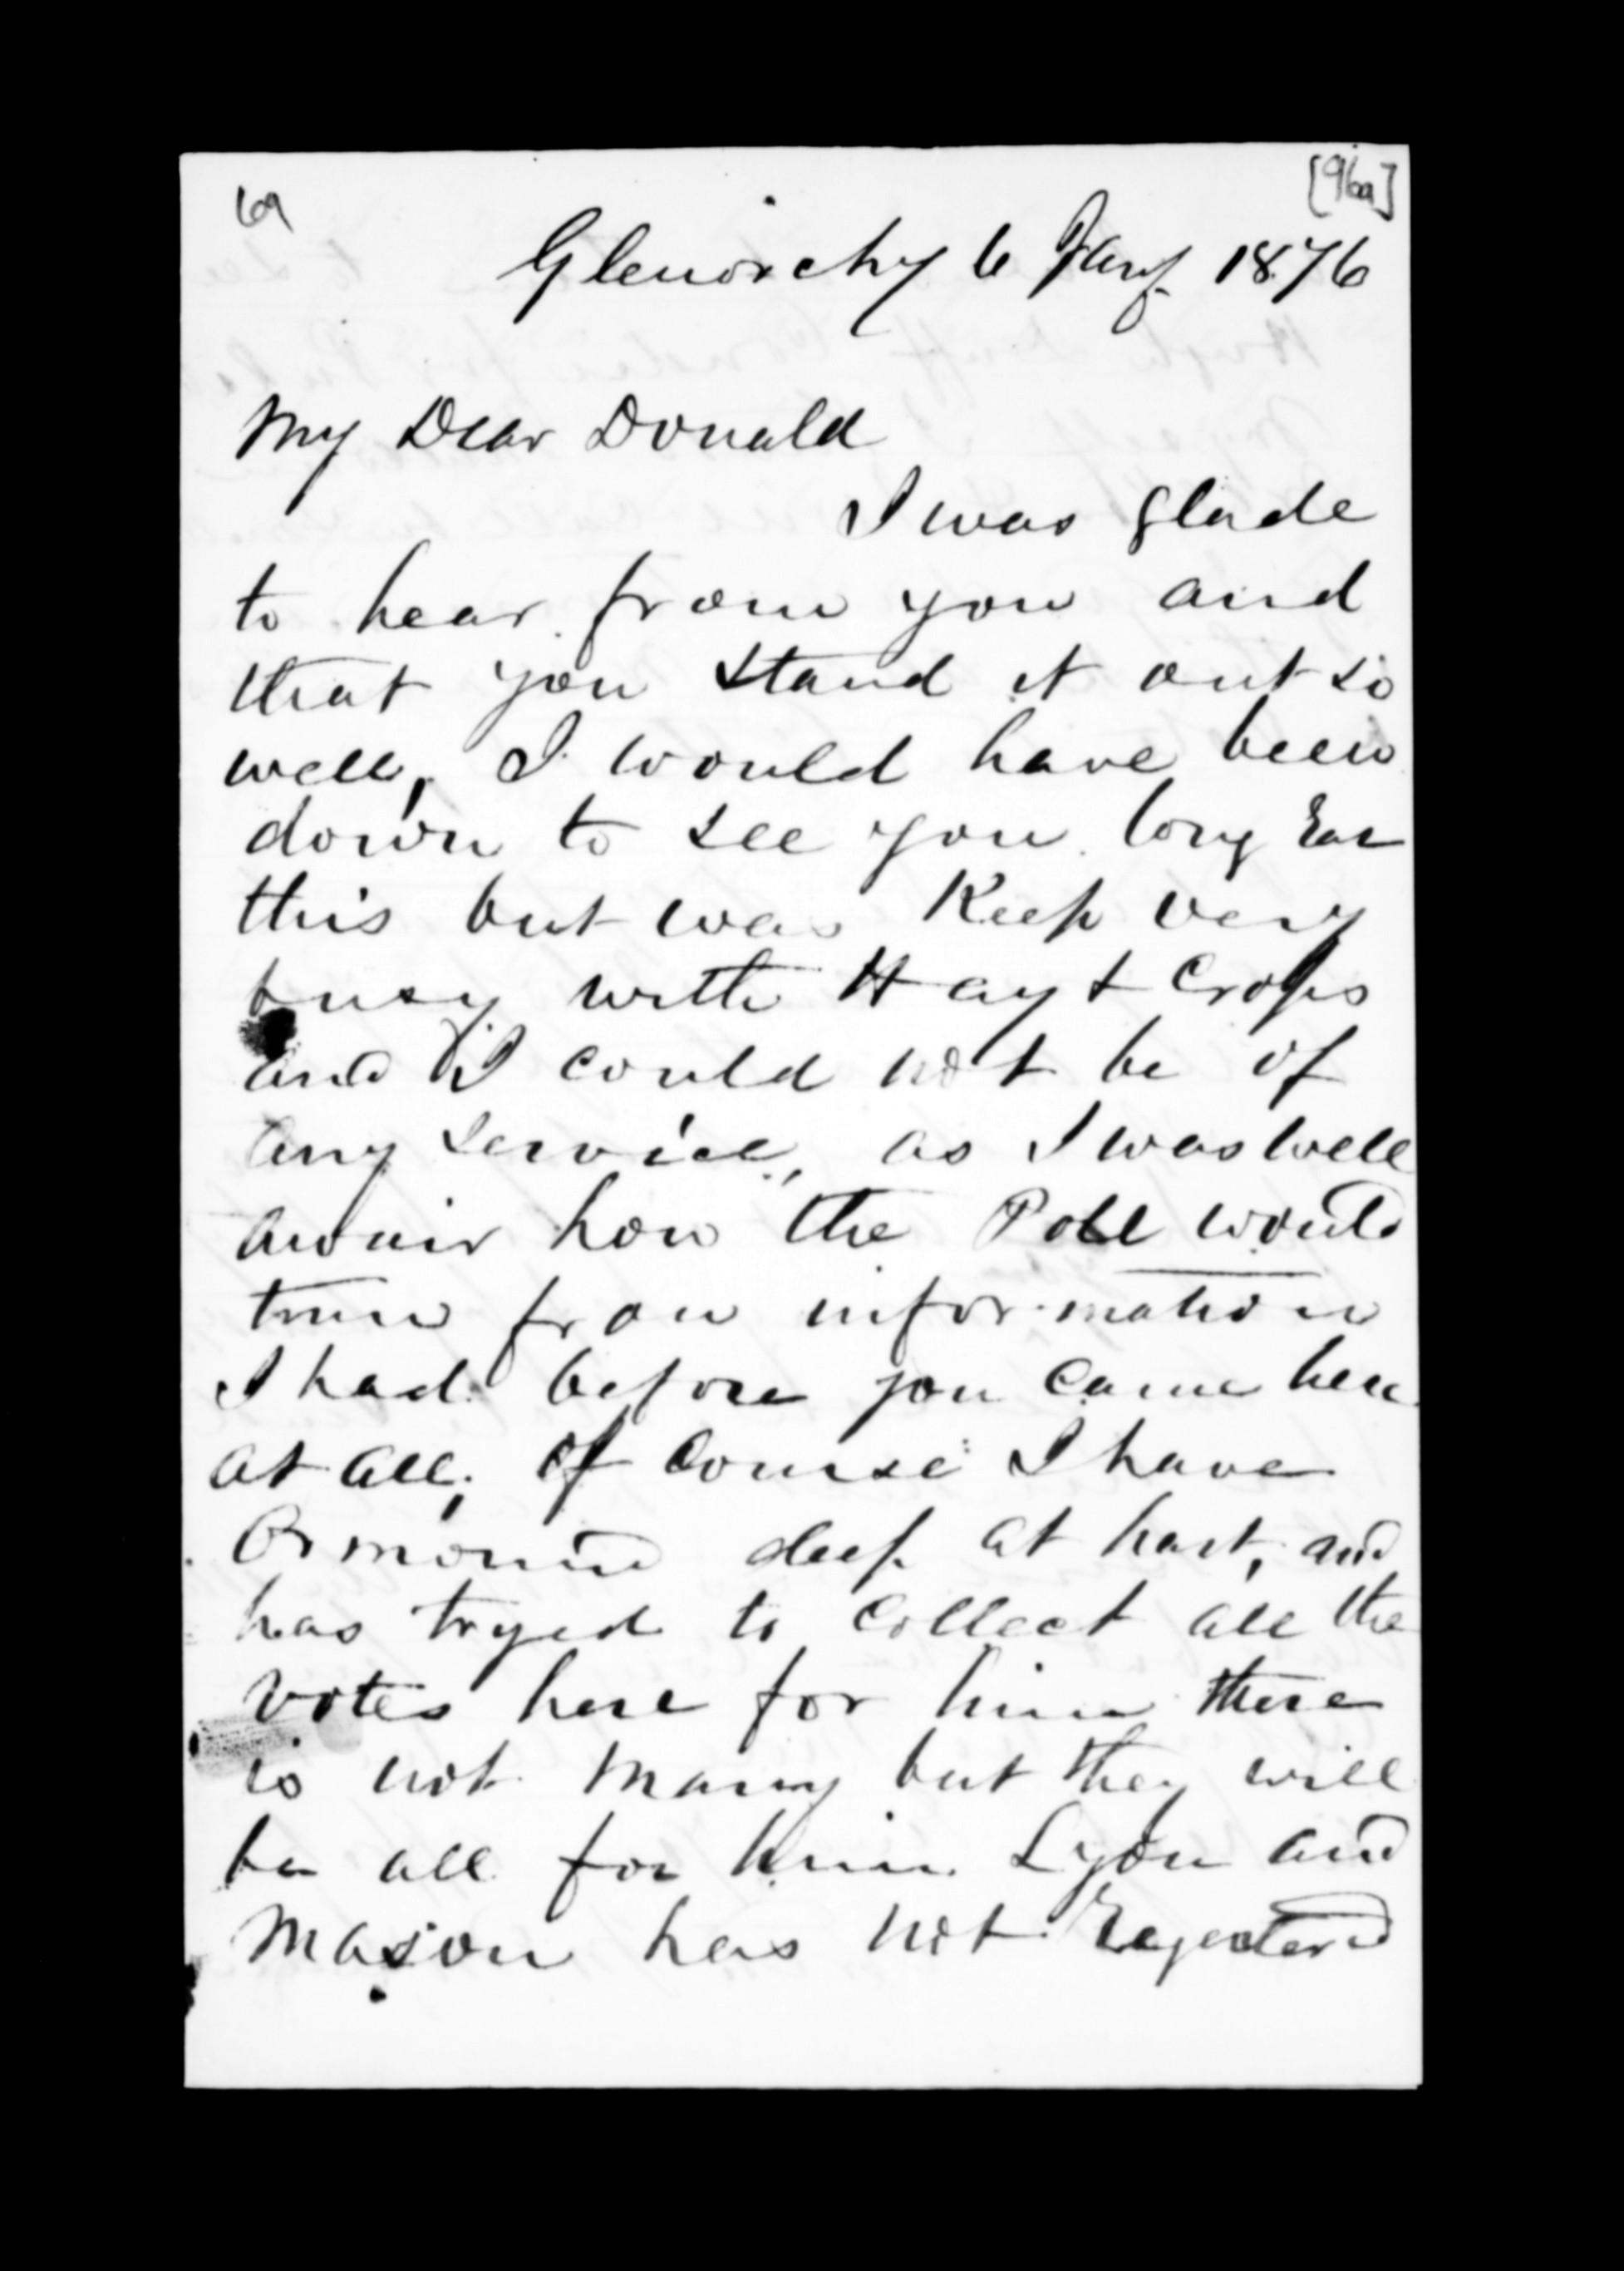 69
[96a]
Glenorchy 6 Jany 1876
My Dear Donald
I was glade
to hear from you and
that you stand it out so
well, I would have been
down to see you long Ear
this but was Keep very
busy with Hay & Crops
and I could not be of
any service, as I was well
awair how the Poll would
turn from information
I had before you came here
at all, Of Course I have
Ormond deep at hart, and
has tryed to Collect all the
votes here for him there
is not many but they will
be all for him. Lyon and
Mason has not